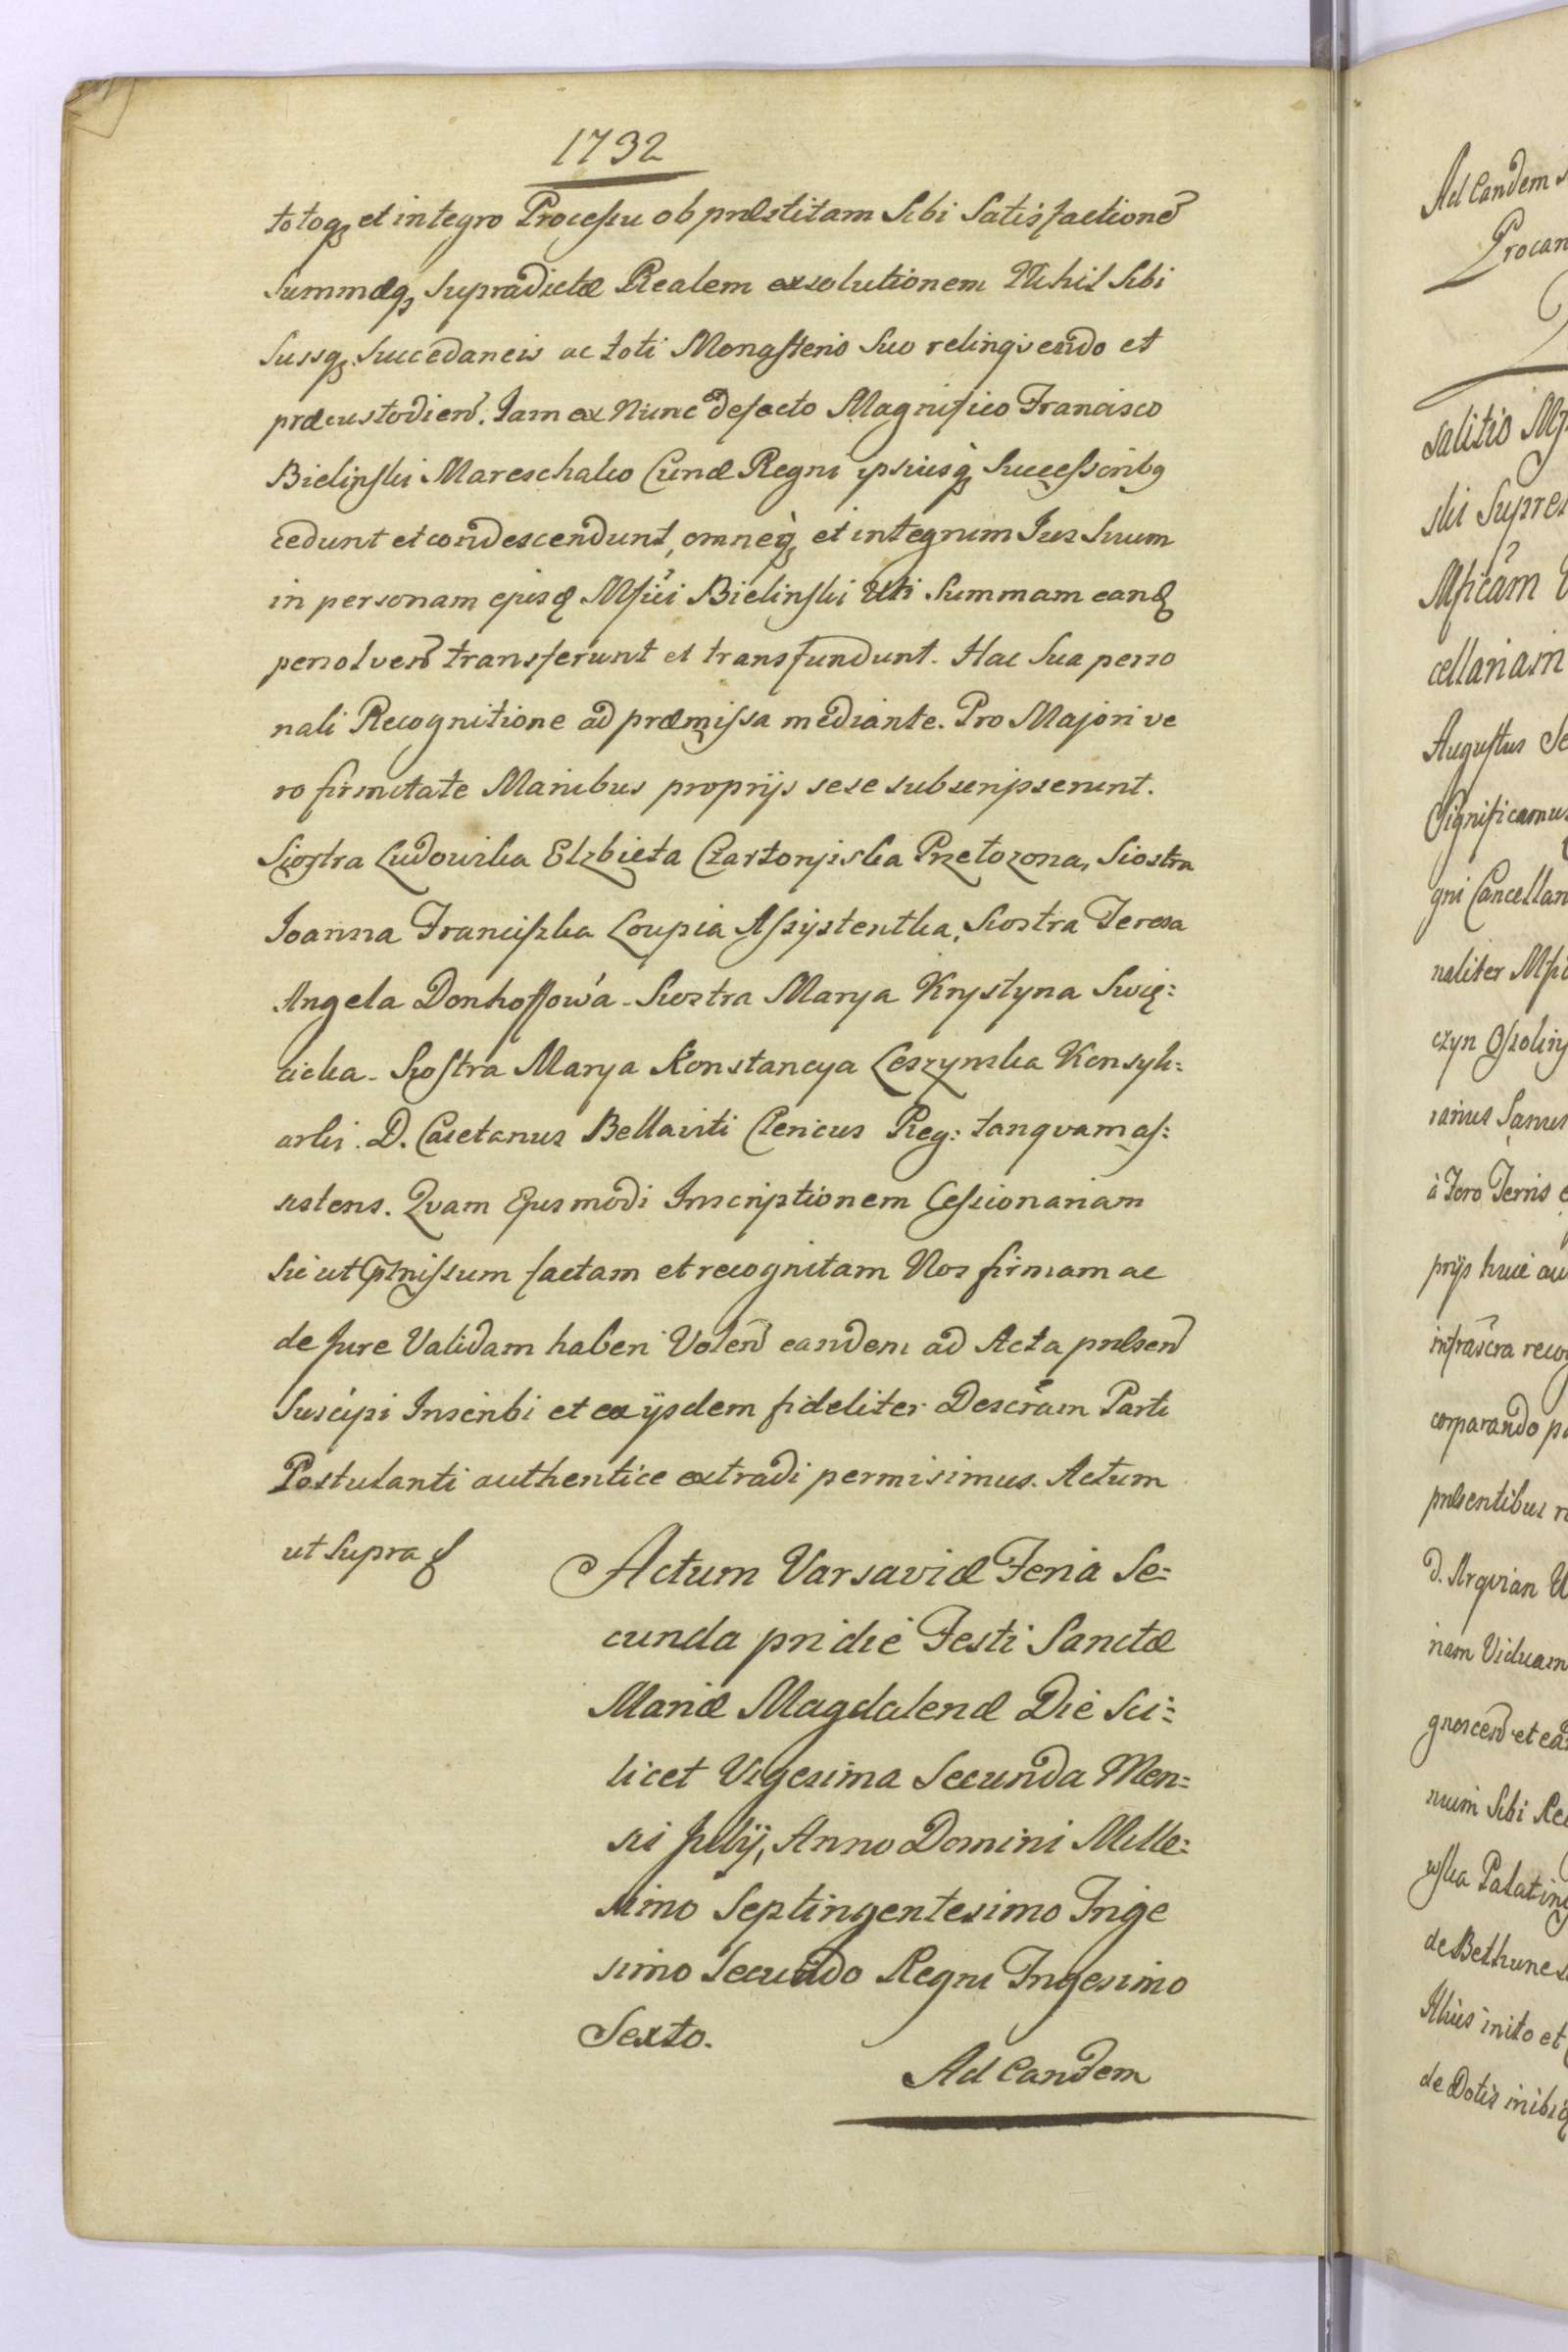 1732
totoq3 et integro Processu ob pnlstitam Sibi Satisfactione
Summæq3 Supradictæ Realem exsolutionem Nihil Sibi
Suisq3 Succedaneis ac toti Monasterio Suo relinqvendo et
præcustodien. Jam ex Nunc defacto Magnifico Francisco
Bielinski Mareschalco Curiæ Regni ipsiusq3 Successorib9
cedunt et condescendunt, omneq3 et integrum Jus Suum
in personam ejusd Mfici Bielinski Uti Summam eand
persolven transferunt et transfundunt. Hac Sua perso
nali Recognitione ad præmissa mediante. Pro Majori ve
ro firmitate Manibus proprijs sese subscripserunt.
Siostra Ludowika Elzbieta Czartoryiska Przetozona, Siostra
Joanna Franciszka Loupia Assystentka, Siostra Teresa
Angela Donhoffowa - Siostra Marya Krystyna Swię:
cicka - Siostra Marya Konstancya Leszynska Konsyli:
arki. D. Caietanus Bellaviti Clericus Reg: tanqvam as:
sistens. Qvam Ejusmodi Inscriptionem Cessionariam
Sicut pmissum factam et recognitam Nos firmam ac
de Jure Validam haberi Volen eandem ad Acta pnlsen
Suscipi Inscribi et ex ijsdem fideliter Descram Parti
Postulanti authentice extradi permisimus. Actum
ut Supra
Actum Varsaviæ Feria Se=
cunda pridie Festi Sanctæ
Mariæ Magdalenæ Die Sci=
licet Vigesima Secunda Men=
sis Julij, Anno Domini Mille=
simo Septingentesimo Trige
simo Secundo Regni Trigesimo
Sexto.
Ad Eandem
Ad Eandem
salitio
slii
Mficam
cellariam
Augustus
Significamus
gni
naliter
czyn
à Foro Terris
prijs huic
infrascra
comparando
pnlsentibus
D.
nam Viduam
gnoscen et
nuim Sibi
de Bethune
Illius inito et
de Dotis